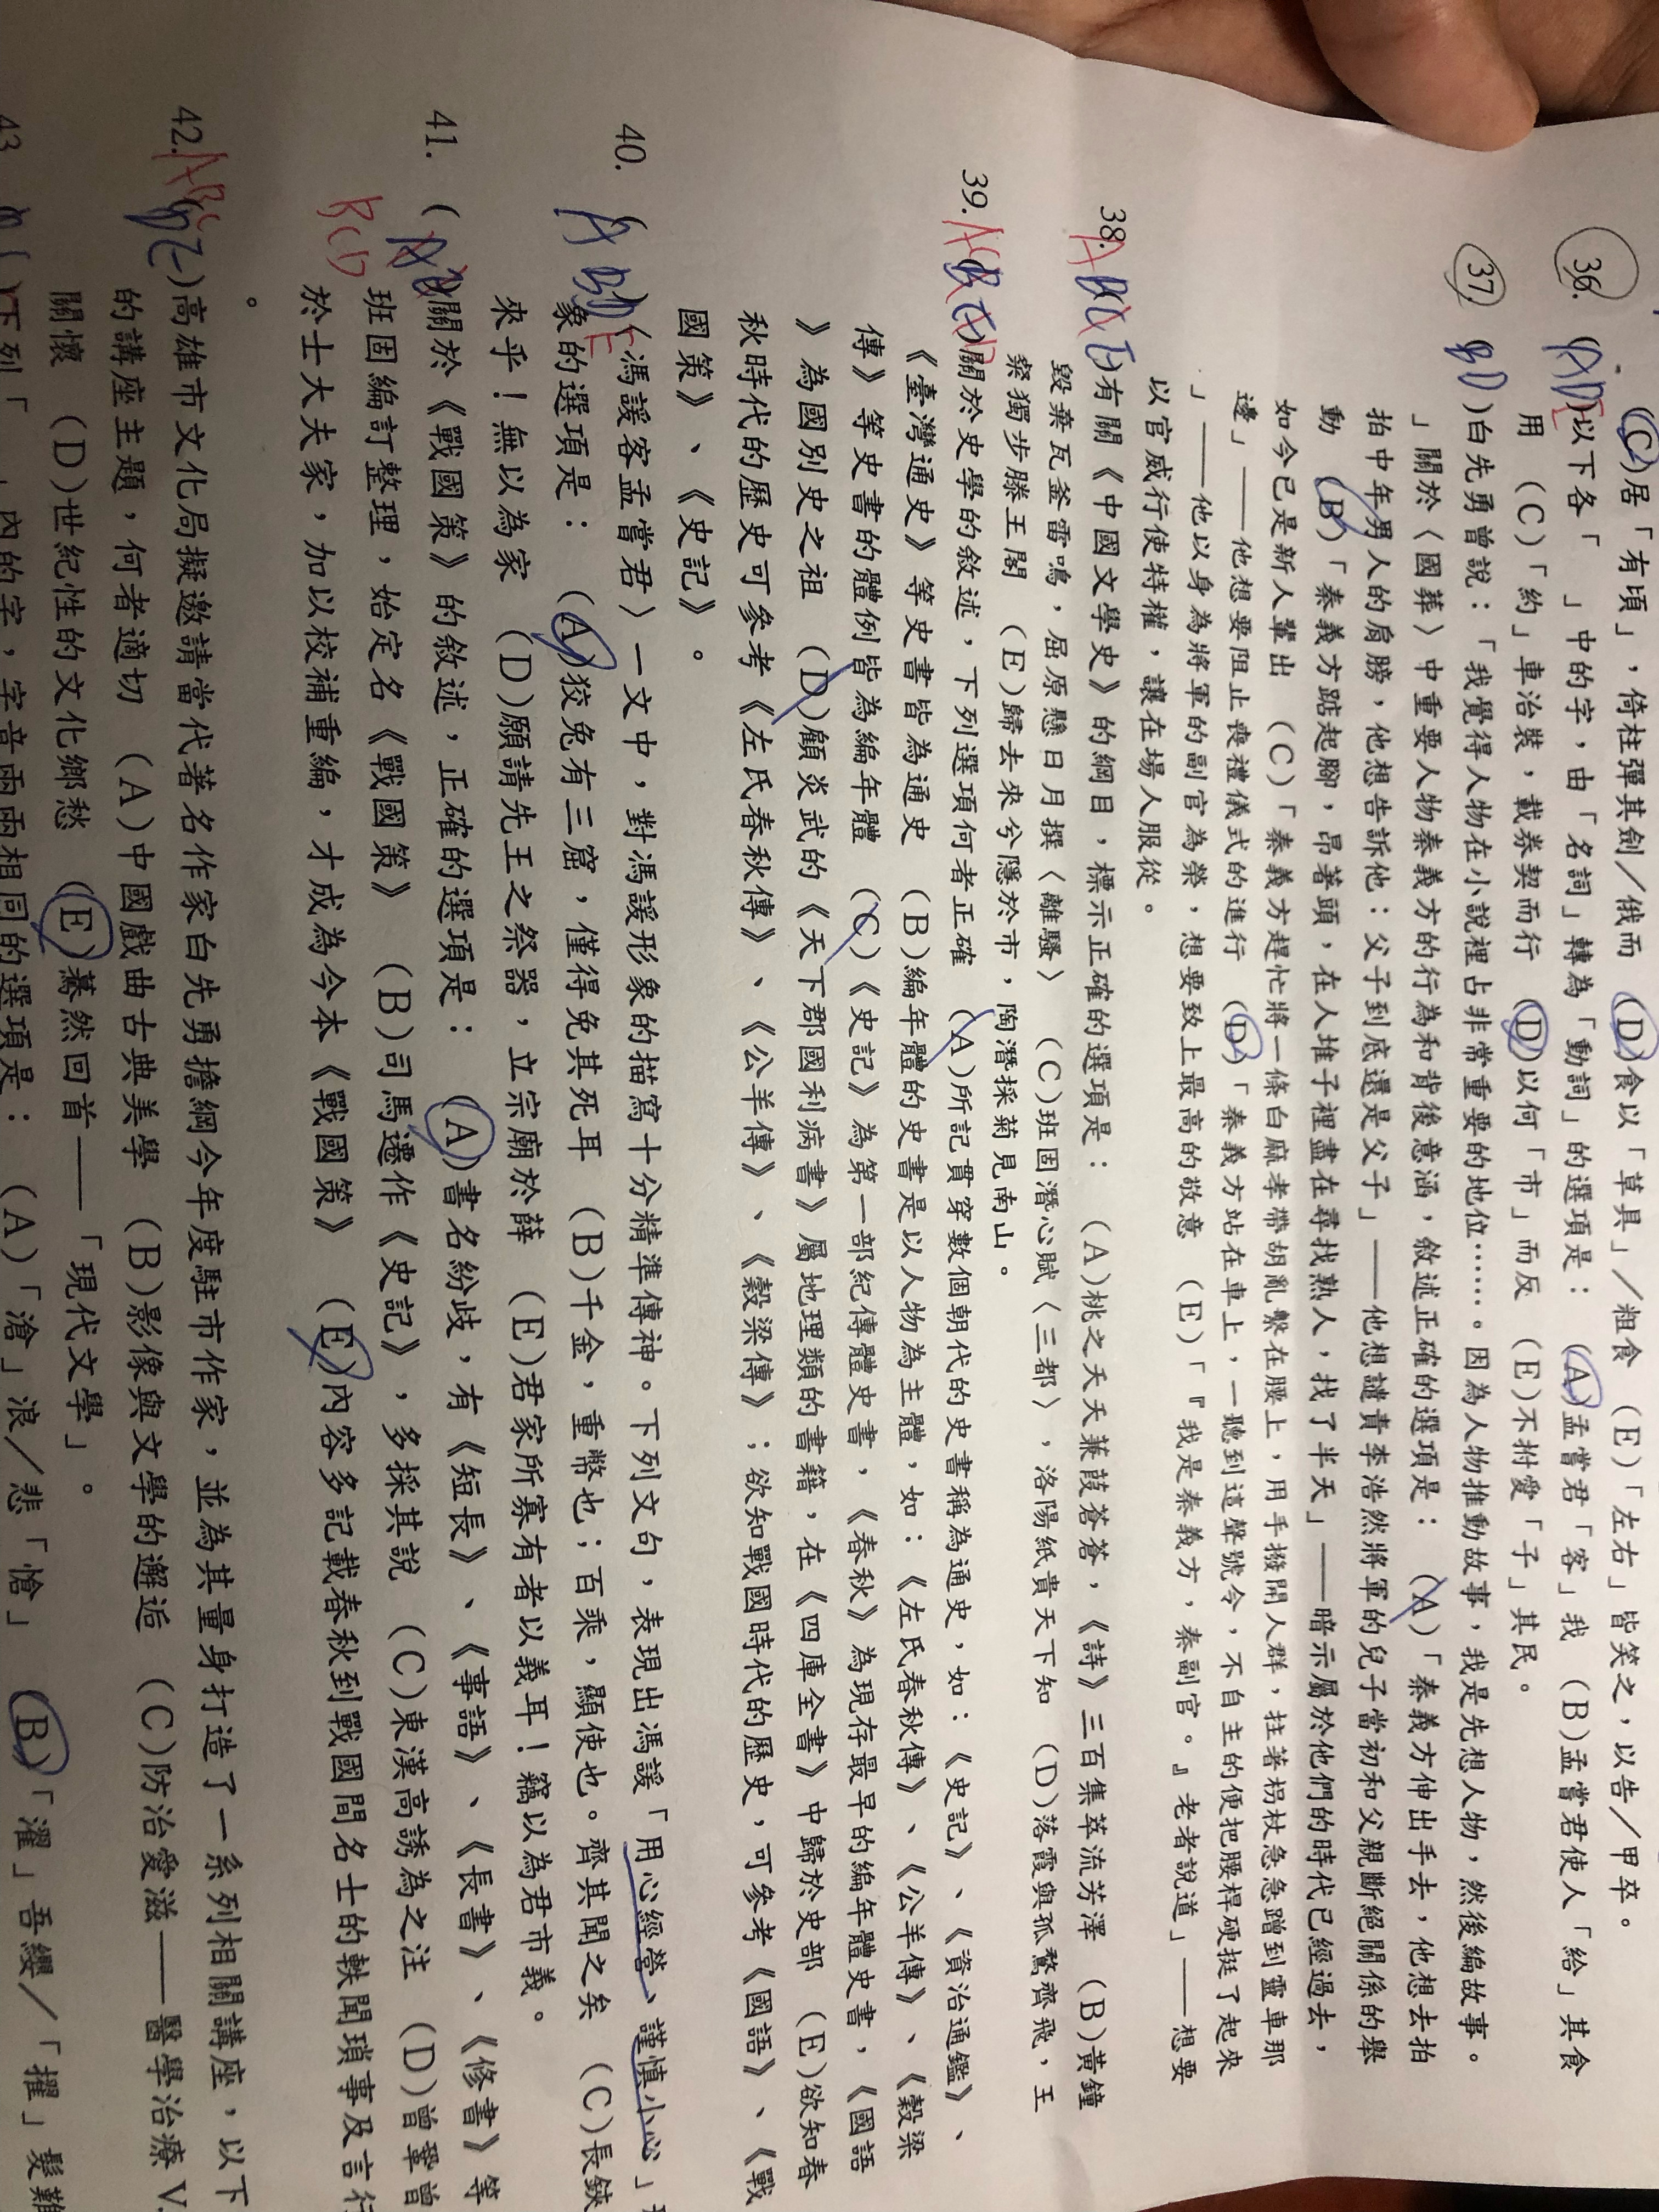 (C)居「有頃」，倚柱彈其劍／俄而 (D)食以「草具」／粗食 (E)「左右」皆笑之，以告／甲卒。
36. (AD E)以下各「 」中的字，由「名詞」轉為「動詞」的選項是： (A)孟嘗君「客」我 (B)孟嘗君使人「給」其食
用 (C)「約」車治裝，載券契而行 (D)以何「市」而反 (E)不拊愛「子」其民。
37 (BD)白先勇曾說：「我覺得人物在小說裡占非常重要的地位……。因為人物推動故事，我是先想人物，然後編故事。
」關於〈國葬〉中重要人物秦義方的行為和背後意涵，敘述正確的選項是： (A)「秦義方伸出手去，他想去拍
拍中年男人的肩膀，他想告訴他：父子到底還是父子」——他想譴責李浩然將軍的兒子當初和父親斷絕關係的舉
動 (B)「秦義方踮起腳，昂著頭，在人堆子裡盡在尋找熟人，找了半天」——暗示屬於他們的時代已經過去，
如今已是新人輩出 (C)「秦義方趕忙將一條白麻孝帶胡亂繫在腰上，用手撥開人群，拄著柺杖急急蹭到靈車那
邊」——他想要阻止喪禮儀式的進行 (D)「秦義方站在車上，一聽到這聲號令，不自主的便把腰桿硬挺了起來
」——他以身為將軍的副官為榮，想要致上最高的敬意 (E)「『我是秦義方，秦副官。』老者說道」——想要
以官威行使特權，讓在場人服從。
38. )有關《中國文學史》的綱目，標示正確的選項是： (A)桃之夭夭蒹葭蒼蒼，《詩》三百集萃流芳澤 (B)黃鐘
毀棄瓦釜雷鳴，屈原懸日月撰〈離騷〉 (C)班固潛心賦〈三都〉，洛陽紙貴天下知 (D)落霞與孤鶩齊飛，王
粲獨步滕王閣 (E)歸去來兮隱於市，陶潛採菊見南山。
39. )關於史學的敘述，下列選項何者正確 (A)所記貫穿數個朝代的史書稱為通史，如：《史記》、《資治通鑑》、
《臺灣通史》等史書皆為通史 (B)編年體的史書是以人物為主體，如：《左氏春秋傳》、《公羊傳》、《穀梁
傳》等史書的體例皆為編年體 (C)《史記》為第一部紀傳體史書，《春秋》為現存最早的編年體史書，《國語
》為國別史之祖 (D)顧炎武的《天下郡國利病書》屬地理類的書籍，在《四庫全書》中歸於史部 (E)欲知春
秋時代的歷史可參考《左氏春秋傳》、《公羊傳》、《穀梁傳》；欲知戰國時代的歷史，可參考《國語》、《戰
國策》、《史記》。
40. (A BD E)〈馮諼客孟嘗君〉一文中，對馮諼形象的描寫十分精準傳神。下列文句，表現出馮諼「用心經營、謹慎小心」
象的選項是： (A)狡兔有三窟，僅得免其死耳 (B)千金，重幣也；百乘，顯使也。齊其聞之矣 (C)長鋏
來乎！無以為家 (D)願請先王之祭器，立宗廟於薛 (E)君家所寡有者以義耳！竊以為君市義。
41. ( BCD )關於《戰國策》的敘述，正確的選項是： (A)書名紛歧，有《短長》、《事語》、《長書》、《修書》等
班固編訂整理，始定名《戰國策》 (B)司馬遷作《史記》，多採其說 (C)東漢高誘為之注 (D)曾鞏曾
於士大夫家，加以校補重編，才成為今本《戰國策》 (E)內容多記載春秋到戰國間名士的軼聞瑣事及言行
。
42. )高雄市文化局擬邀請當代著名作家白先勇擔綱今年度駐市作家，並為其量身打造了一系列相關講座，以下
的講座主題，何者適切 (A)中國戲曲古典美學 (B)影像與文學的邂逅 (C)防治愛滋——醫學治療V.
關懷 (D)世紀性的文化鄉愁 (E)驀然回首——「現代文學」。
43 下列「 」內的字，字音兩兩相同的選項是： (A)「滄」浪／悲「愴」 (B)「濯」吾纓／「擢」髮難